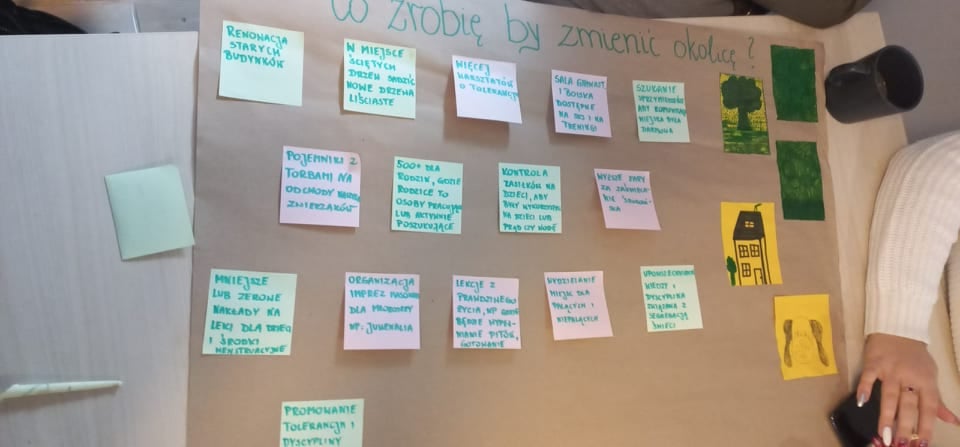 co zrobię by zmienić okolicę?
RENOWACJA
STARYCH
BUDYNKÓW
W MIEJSCE
ŚCIĘTYCH
DRZEW SADZIĆ
NOWE DRZEWA
LIŚCIASTE
WIĘCEJ
WARSZTATÓW
O TOLERANCJI
SALA GIMNAST.
I BOISKA
DOSTĘPNE
NA SKS I NA
TRENINGI
SZUKANIE
SPRZYMIERZEŃCÓW
ABY KOMUNIKACJA
MIEJSKA BYŁA
DARMOWA
POJEMNIKI Z
TORBAMI NA
ODCHODY
ZWIERZAKÓW
500+ DLA
RODZIN, GDZIE
RODZICE TO
OSOBY PRACUJĄCE
LUB AKTYWNIE
POSZUKUJĄCE
KONTROLA
ZASIŁKÓW NA
DZIECI, ABY
BYŁY WYKORZYST.
NA DZIECI LUB
PRĄD CZY WODĘ
WYŻSZE KARY
ZA
ŚRODOWI-
SKA
MNIEJSZE
LUB ZEROWE
NAKŁADY NA
LEKI DLA DZIECI
I ŚRODKI
MENSTRUACYJNE
ORGANIZACJA
IMPREZ MASOWYCH
DLA MŁODZIEŻY
NP. JUWENALIA
LEKCJE Z
PRAWDZIWEGO
ŻYCIA, NP GDZIE
BĘDZIE WYPEŁ-
NIANIE PITÓW,
GOTOWANIE
WYDZIELANIE
MIEJSC DLA
PALĄCYCH I
NIEPALĄCYCH
WIEDZY I
DYSCYPLINA
ZWIĄZANA Z
SEGREGACJĄ
ŚMIECI
PROMOWANIE
TOLERANCJI I
DYSCYPLINY